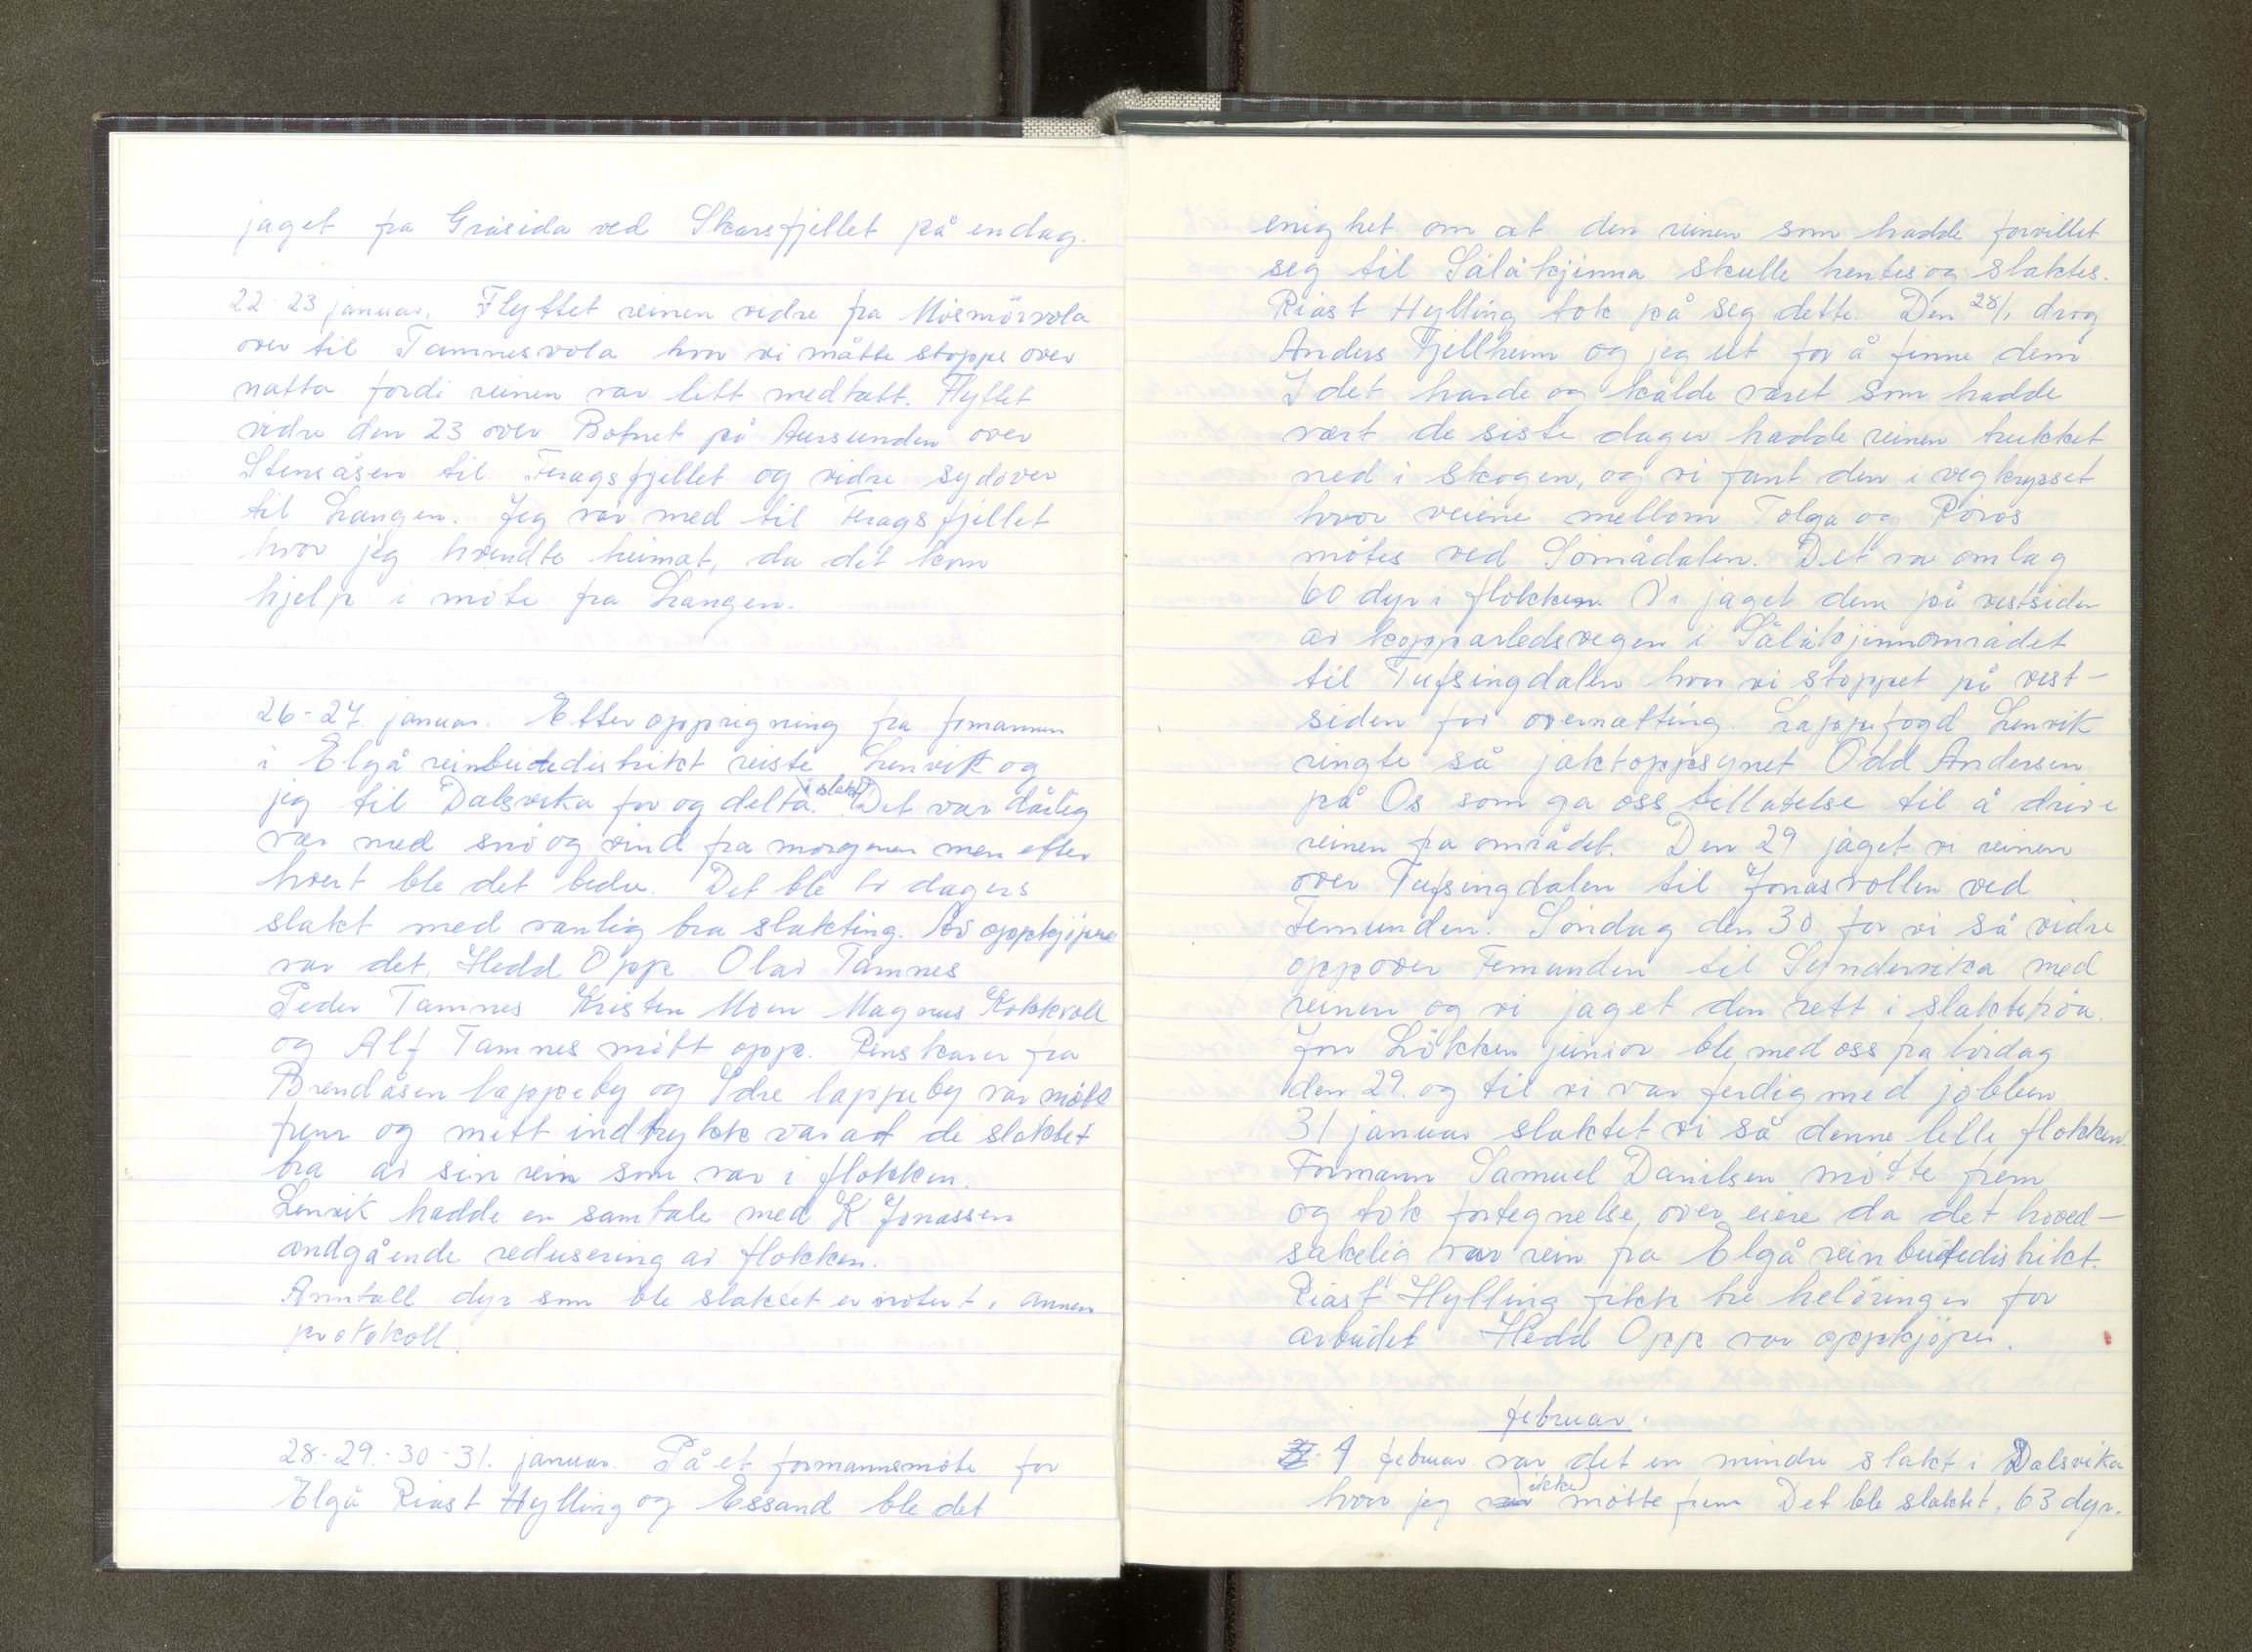 jaget fra Gråsida ved Skarsfjellet på en dag.
22-23 januar. Flyttet reinen vidre fra Mosmörvola
over til Tamnesvola hvor vi måtte stoppe over
natta fordi reinen var litt medtatt. Flyttet
vidre den 23 over Botnet på Aursunden over
Stensåsen til Feragsfjellet og vidre sydover
til Langen. Jeg var med til Feragsfjellet
hvor jeg hvendte heimat, da det kom
hjelp i möte fra Langen.
26-27 januar. Etter opprigning fra formannen
i Elgå reinbeitedistrikt reiste Lenvik og
jeg til Dalsvika for og delta i slakt. Det var dårlig
vær med snö og vind fra morgenen men etter
hvert ble det bedre. Det ble to dagers
slakt med vanlig bra slakting. Av oppkjöpere
var det. Hedd Opp Olav Tamnes
Peder Tamnes Kristen Moen Magnus Kokkvoll
og Alf Tamnes mött opp. Renskarer fra
Brendåsen lappeby og Idre lappeby var mött
frem og mitt indtrykk var at de slaktet
bra av sin rein som var i flokken.
Lenvik hadde en samtale med K Jonassen
andgående redusering av flokken.
Anntall dyr som ble slaktet er notert i annen
protokoll.
28.-29.-30-31. januar. På et formannsmöte for
Elgå Riast Hylling og Essand ble det
enighet om at den reinen som hadde forvillet
seg til Sålåkjinna skulle hentes og slaktes.
Riast Hylling tok på seg dette. Den 28/1 drog
Anders Fjellheim og jeg ut for å finne dem.
I det harde og kålde været som hadde
vært de siste dager hadde reinen trukket
ned i skogen, og vi fant den i vegkrysset
hvor veiene mellom Tolga og Röros
mötes ved Sömådalen. Det va omlag
60 dyr i flokken. Vi jaget dem på vestsiden
av kopparledsvegen i Sålåkjinnområdet
til Tufsingdalen hvor vi stoppet på vest-
siden for overnatting. Lappefogd Lenvik
ringte så jaktoppsynet Odd Andersen
på Os som ga oss tillatelse til å drive
reinen fra området. Den 29 jaget vi reinen
over Tufsingdalen til Jonasvollen ved
Femunden. Söndag den 30 for vi så vidre
oppover Femunden til Syndervika med
reinen og vi jaget den rett i slaktetröa.
Jon Lökken junior ble med oss fra lördag
den 29. og til vi var ferdig med jobben
31 januar slaktet vi så denne lelle flokken
Formann Samuel Danilsen mötte frem
og tok fortegnelse, over eiere da det hoved-
sakelig var rein fra Elgå reinbeitedistrikt.
Riast Hylling fikk tre helöringer for
arbeidet Hedd Opp var oppkjöper.
februar.
4 februar var det en mindre slakt i Dalsvika
hvor jeg ikke mötte frem Det ble slaktet, 63 dyr.